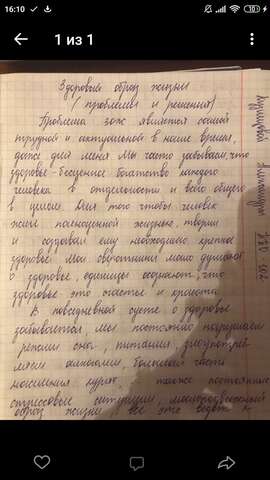 16:10
1 из 1
Здоровый образ жизни
(проблемы и решения)
Проблема зож является самой
трудной и актуальной в наше время,
даже для меня Мы часто забываем, что
здоровье - бесценное богатство каждого
человека в отдельности и всего общего
в целом Для того чтобы человек
жить полноценной жизнью, творил
и создавал ему необходимо крепкое
здоровье Мы обычно мало думаем
о здоровье, единицы осознают, что
здоровье это счастье и красота
В повседневной суете о здоровье
забывается мы постоянно нарушаем
режим сна, питания, злоупотреб-
ляем алкоголем, большая часть
населения курит, также постоянные
стрессовые ситуации, малоподвижный
образ жизни все это ведет к